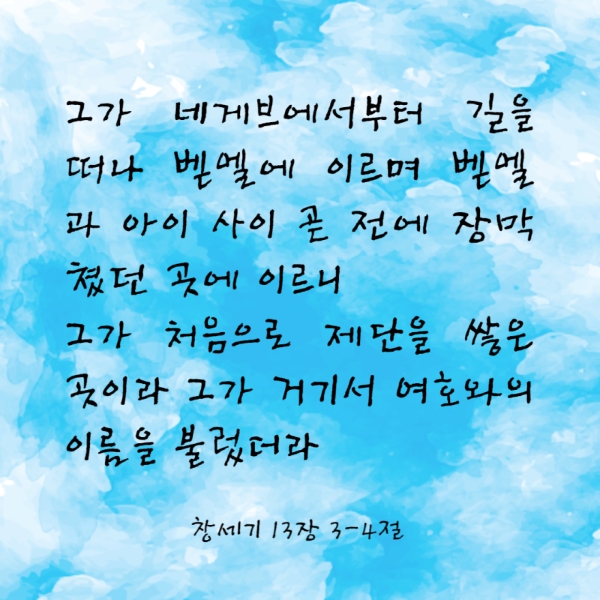 그가 네게브에서부터 길을
떠나 벧엘에 이르며 벧엘
과 아이 사이 곧 전에 장막
쳤던 곳에 이르니
그가 처음으로 제단을 쌓은
곳이라 그가 거기서 여호와의
이름을 불렀더라
창세기 13장 3-4절